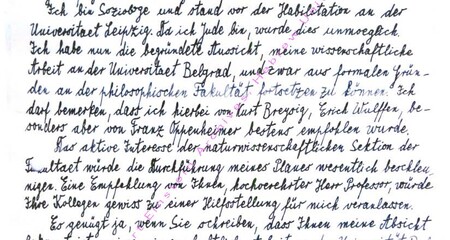 Ich bin Soziologe und stand vor der Habilitation an der
Universitaet Leipzig. Da ich Jude bin, wurde dies unmoeglich.
Ich habe nun die begründete Aussicht, meine wissenschaftliche
Arbeit an der Universitaet Belgrad, und zwar aus formalen Grün-
den an der philosophischen Fakultät fortsetzen zu können. Ich
darf bemerken, dass ich hierbei von Kurt Breysig, Erich Wulffen, be-
sonders aber von Franz Oppenheimer bestens empfohlen wurde.
Das aktive Interesse der naturwissenschaftlichen Sektion der
Fakultaet würde die Durchführung meines Planes wesentlich beschleu-
nigen. Eine Empfehlung von Ihnen, hochverehrter Herr Professor, würde
Ihre Kollegen gewiss zu einer Hilfestellung für mich veranlassen.
Es genügt ja, wenn Sie schreiben, dass Ihnen meine Absicht